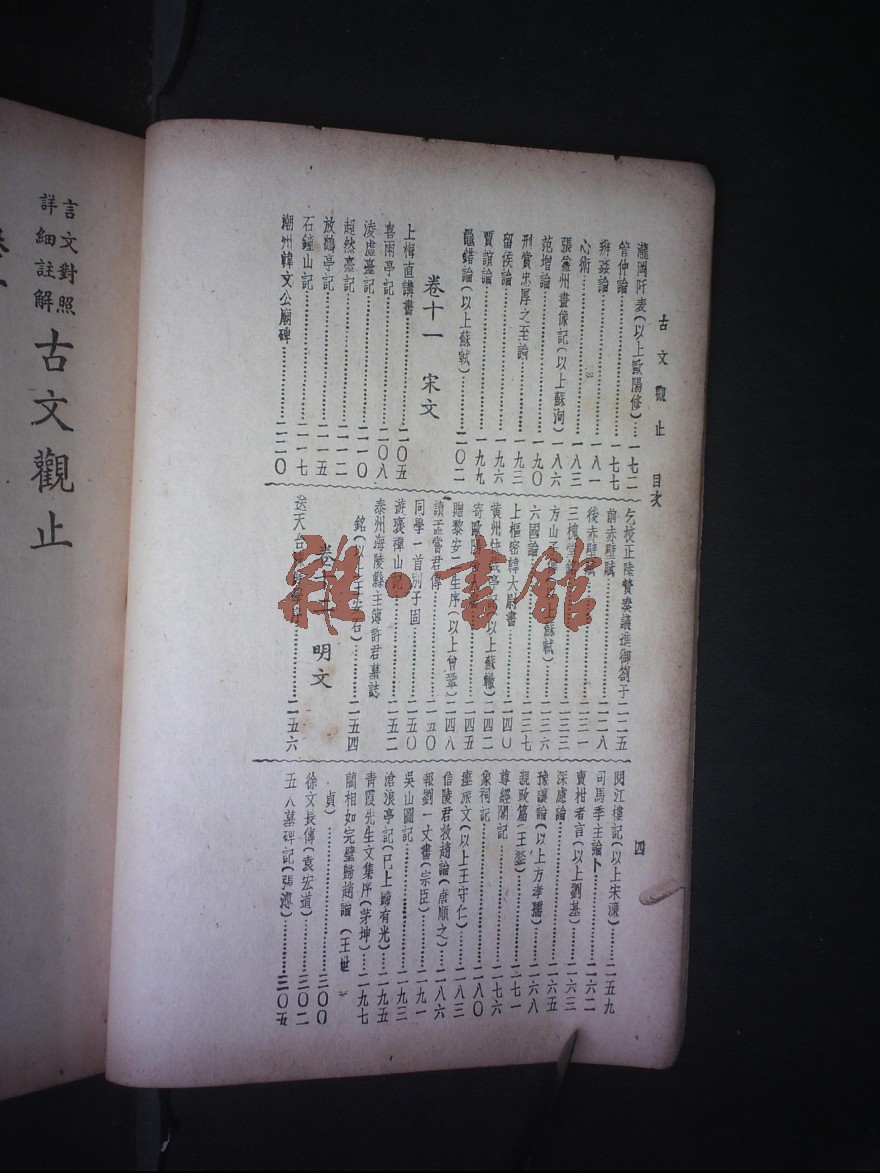 古文觀止 目次
四
瀧岡阡表(以上歐陽修)…一七二
管仲論…一七七
辨姦論…一八一
心術…一八三
張益州畫像記(以上蘇洵)一八六
范增論…一九〇
刑賞忠厚之至論…一九三
留侯論…一九六
賈誼論…一九九
鼂錯論(以上蘇軾)…二〇二
卷十一 宋文
上梅直講書…二〇五
喜雨亭記…二〇八
凌虛臺記…二一〇
超然臺記…二一二
放鶴亭記…二一五
石鐘山記…二一七
潮州韓文公廟碑…二二〇
乞校正陸贄奏議進御劄子二二五
前赤壁賦…二二八
後赤壁賦…二三一
三槐堂…二三三
方山子…蘇軾)…二三六
六國論…二三七
上樞密韓大尉書…二四〇
黃州快哉亭…以上蘇轍)二四二
寄歐陽…二四五
贈黎安二生序(以上曾鞏)二四八
讀孟嘗君傳…二五〇
同學一首別子固…二五〇
遊褒禪山記…二五二
泰州海陵縣主簿許君墓誌
銘(以上王安石)…二五四
卷十二 明文
送天台…二五六
閱江樓記(以上宋濂)…二五九
司馬季主論卜…二六二
賣柑者言(以上劉基)…二六三
深慮論…二六五
豫讓論(以上方孝孺)…二六八
親政篇(王鏊)…二七一
尊經閣記…二七六
象祠記…二八〇
瘞旅文(以上王守仁)…二八三
信陵君救趙論(唐順之)…二八六
報劉一丈書(宗臣)…二九一
吳山圖記…二九三
滄浪亭記(已上歸有光)…二九五
青霞先生文集序(茅坤)…二九七
藺相如完璧歸趙論(王世
貞)…三〇〇
徐文長傳(袁宏道)…三〇二
五人墓碑記(張溥)…三〇五
雜·書館
言文對照
詳細註解
古文觀止